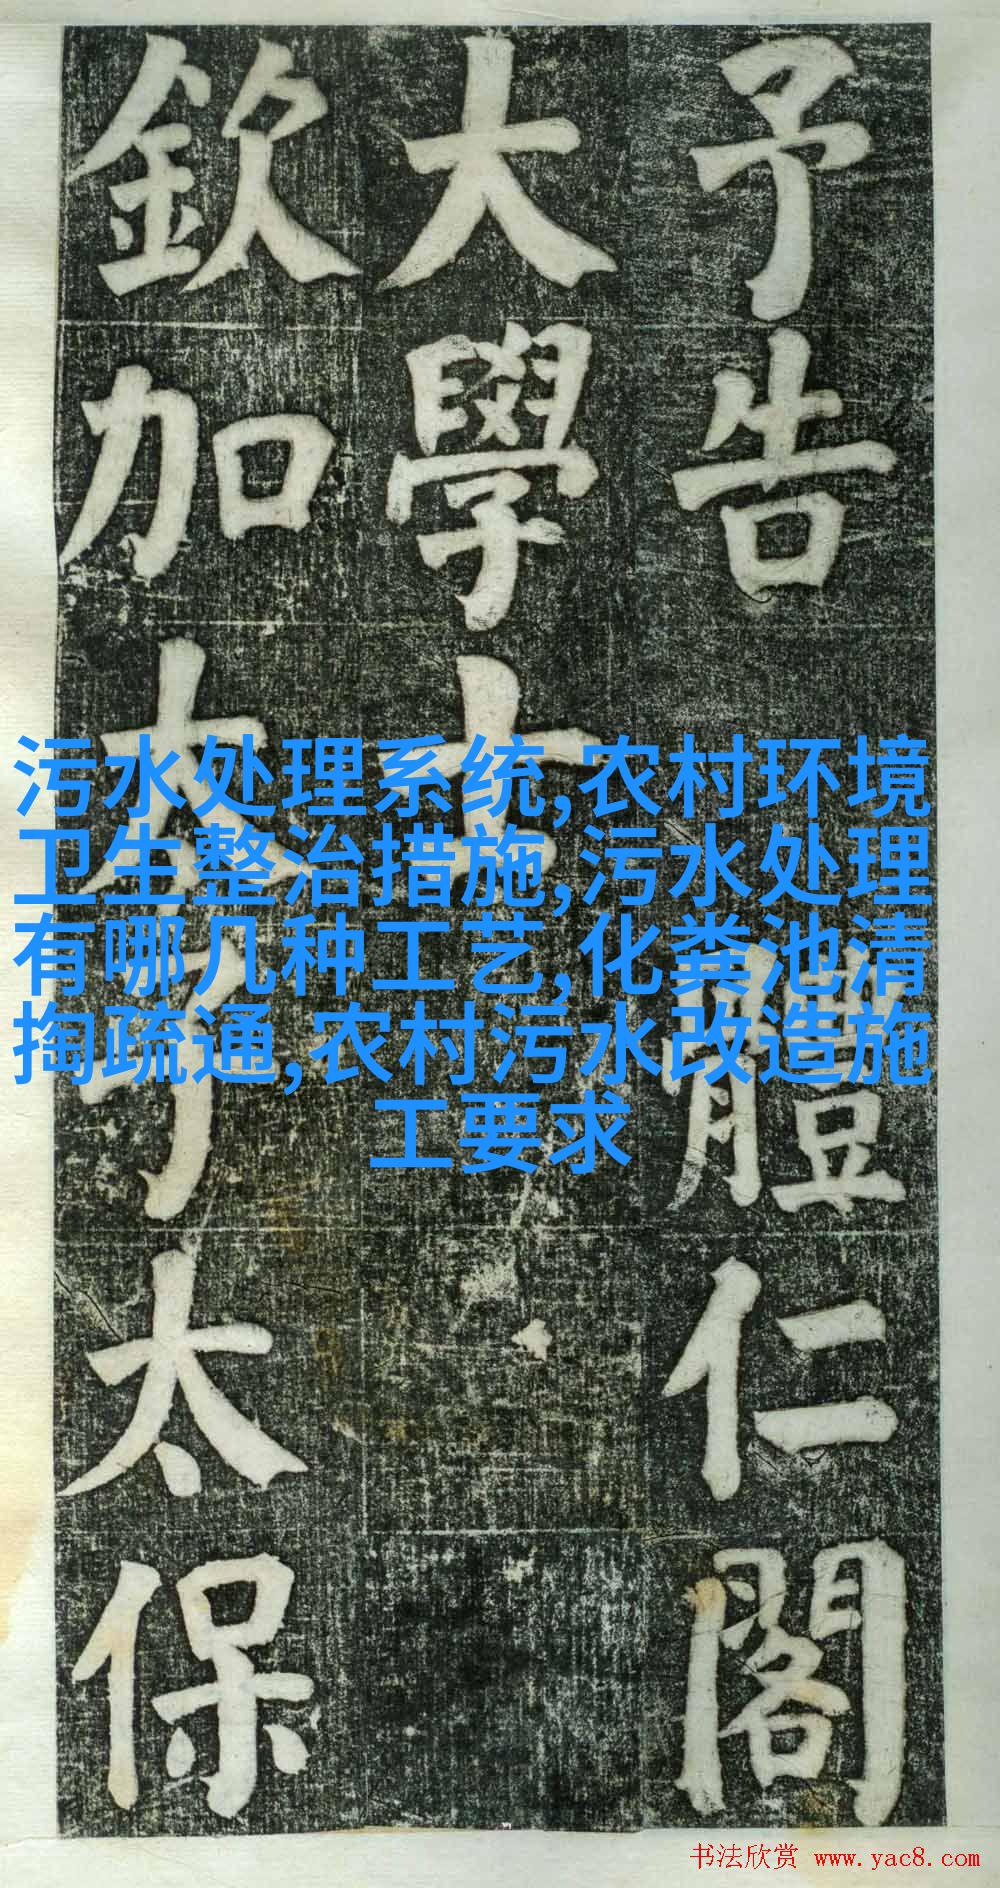 予告 體仁閣
大學士
欽加太子太保
污水处理系统,农村环境
卫生整治措施,污水处理
有哪几种工艺,化粪池清
掏疏通,农村污水改造施
工要求
书法欣赏 www.yac8.com